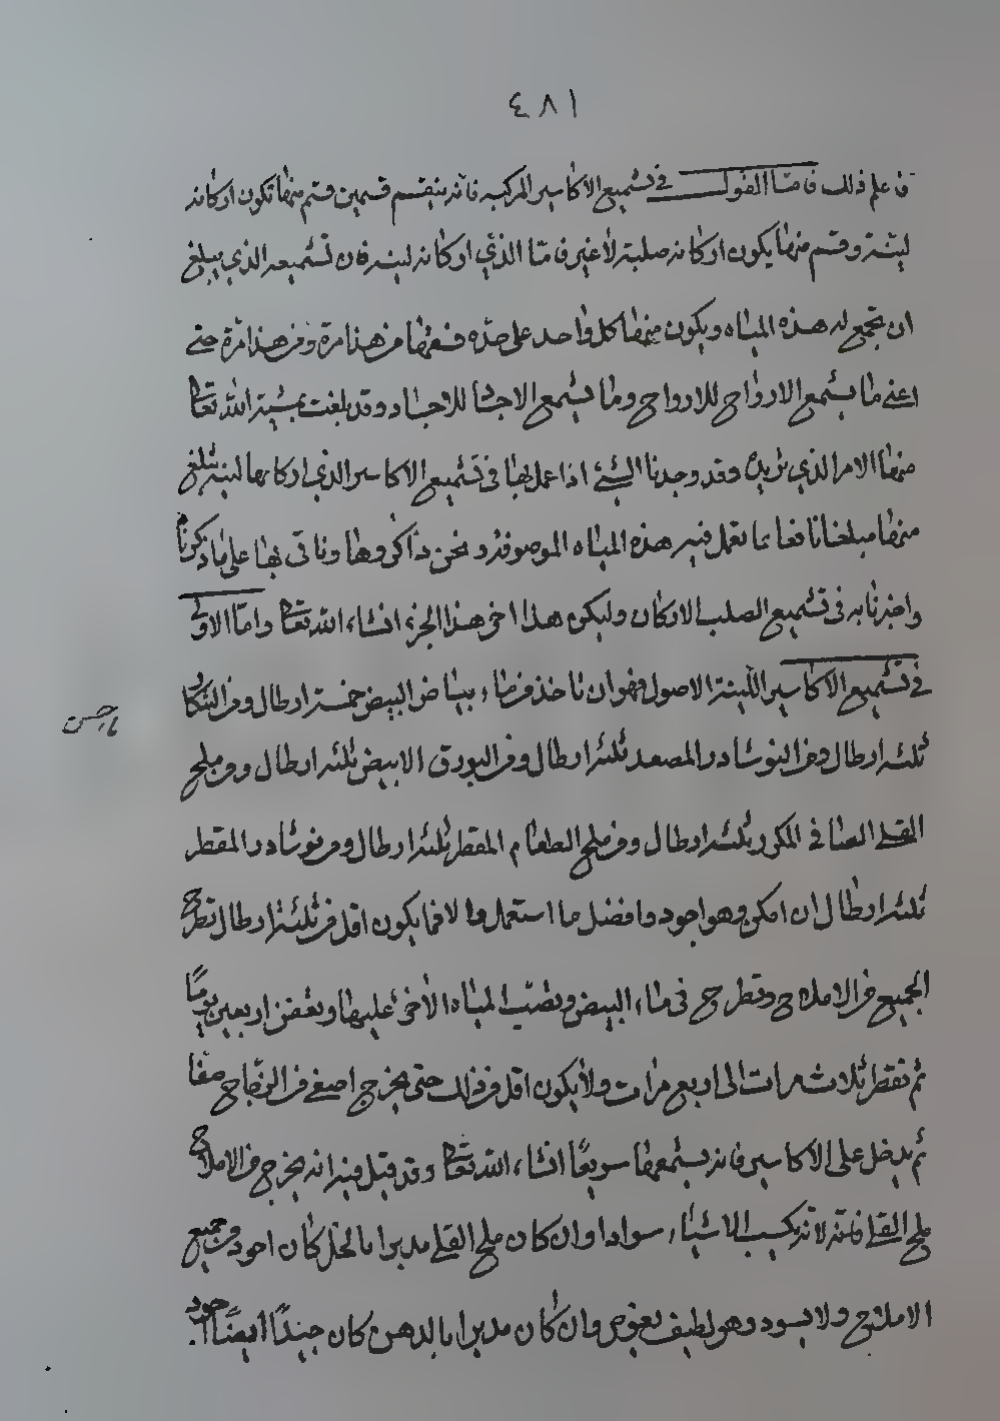 ٤٨١
فاعلم ذلك فامّا القول في تشميع الاكاسير المركبه فانه ينقسم قسمين قسم منها تكون اركانه
لينة وقسم منها يكون اركانه صلبة لا غير فامّا الذي اركانه لينه فان تشميعه الذي يبلغ
ان تجمع له هذه المياه ويكون منها كل واحد على حدّه من هذا مرة ومن هذا مرّة حتى
اعني ما يشمع الارواح للارواح وما يشمع الاجساد للاجساد وقد بلغت بمشيّة الله تعالى
منها الامر الذي تريده وقد وجدنا الشيء اذا عمل بها في تشميع الاكاسير الذي اركانها لينه تبلغ
منها مبلغا نافعا بما تعمل فيه هذه المياه الموصوفة ونحن ذاكروها وناتى بها على ما ذكرنا
واخبرنا به في تشميع الصلب الاركان وليكن هذا اخر هذا الجزء انشاء الله تعالى وامّا الاولى
في تشميع الاكاسير اللينة الاصول فهو ان تاخذ من ماء بياض البيض خمسة ارطال ومن
ثلثه ارطال ومن النوشادر المصعد ثلثه ارطال ومن البورق الابيض ثلثه ارطال ومن ملح
القلى الصافى المكرر ثلثه ارطال ومن ملح الطعام المقطر ثلثه ارطال ومن نوشادر المقطر
ثلثه ارطال ان امكن وهو اجود وافضل ما استعمل والا فما يكون اقل من ثلثة ارطال تطرح
الجميع من الاملاح وتطرح في ماء البيض وتصبّ المياه الأخر عليها وتعفن اربعين يومًا
ثم تقطر ثلاث مرات الى اربع مرات ولا يكون اقل من ذلك حتى يخرج اصفى من الزجاج صفا
ثم يدخل على الاكاسير فانه يشمعها سريعًا انشاء الله تعالى وقد قيل فيه انه يخرج من الاملاح
ملح القلى فانّه لانّه يكسب الاشياء سوادا وان كان ملح القلى مدبرا بالخل كان اجود من جميع
الاملاح ولا يسود وهو لطيف يغوص وان كان مدبرا بالدهن كان جيدًا ايضًا اجود